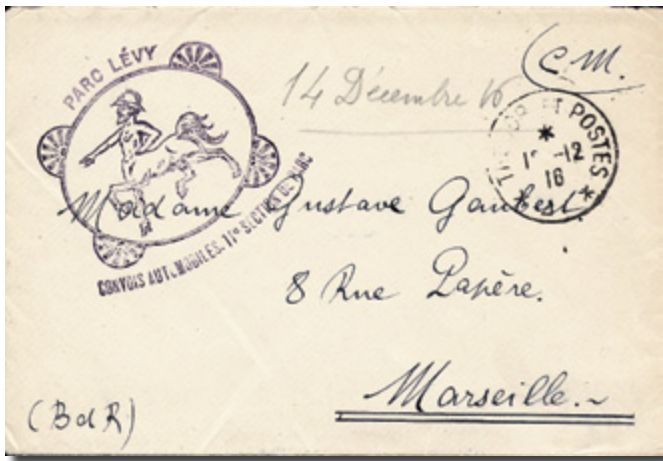 PARC LÉVY
CONVOIS AUTOMOBILES. 1re SECTION DE PARC
14 Décembre 16
CM.
TRESOR ET POSTES
-12
16
Madame Gustave Gaubert.
8 Rue Papère.
Marseille.~
(BdR)